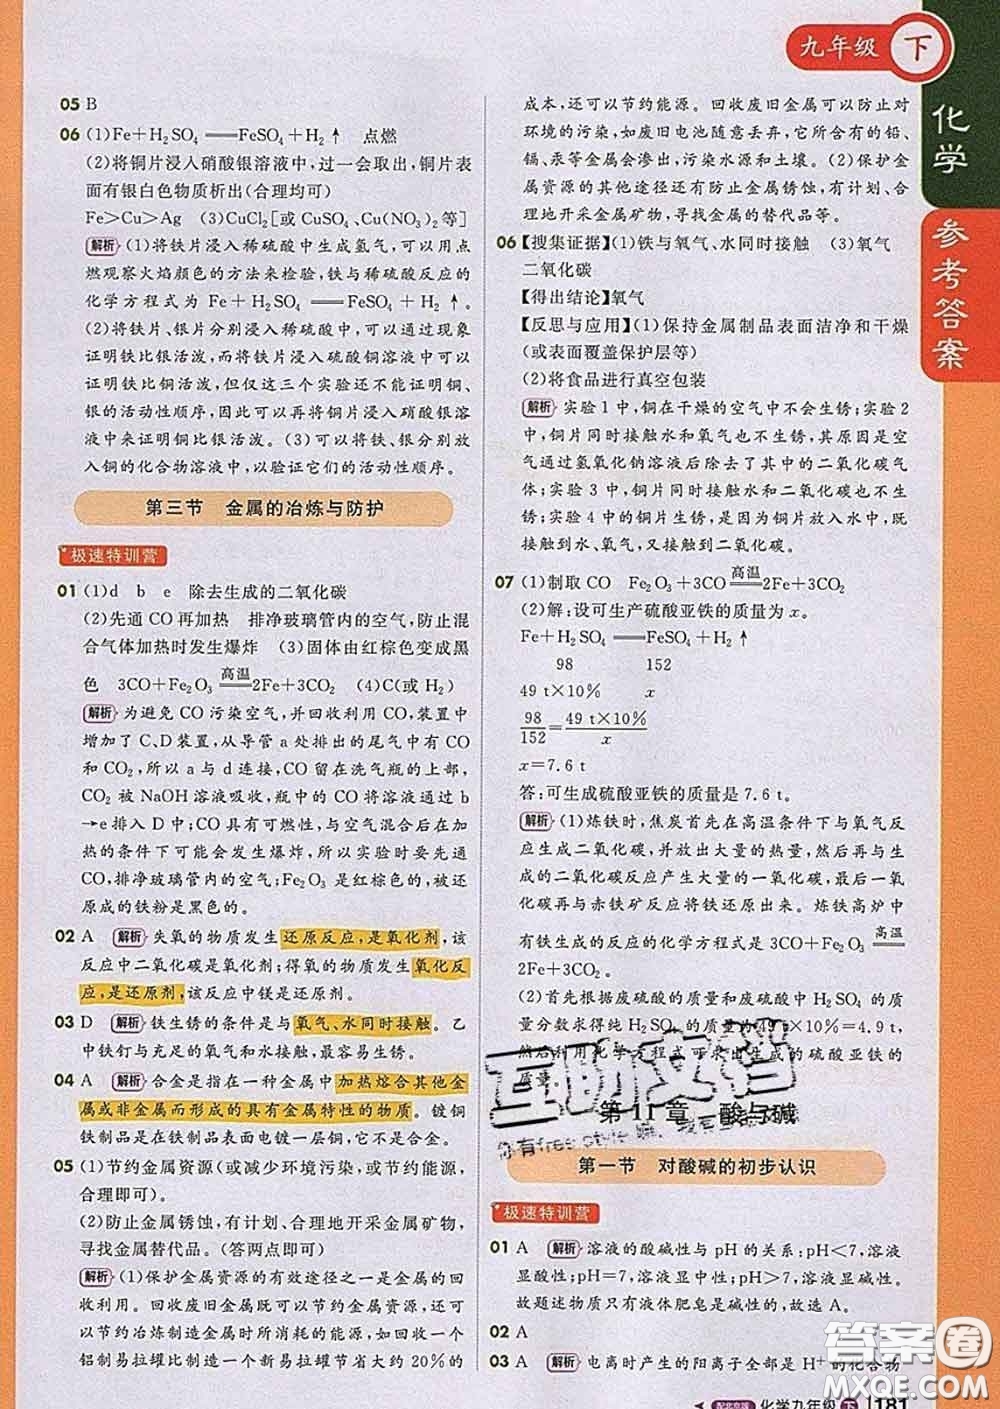 九年级 下
化学
参考答案
05 B
06 (1)Fe+H₂SO₄══FeSO₄+H₂↑ 点燃
(2)将铜片浸入硝酸银溶液中,过一会取出,铜片表
面有银白色物质析出(合理均可)
Fe>Cu>Ag (3)CuCl₂[或CuSO₄、Cu(NO₃)₂等]
解析 (1)将铁片浸入稀硫酸中生成氢气,可以用点
燃观察火焰颜色的方法来检验,铁与稀硫酸反应的
化学方程式为 Fe+H₂SO₄══FeSO₄+H₂↑。
(2)将铁片、银片分别浸入稀硫酸中,通过现象可以
证明铁比银活泼,而将铁片浸入硫酸铜溶液中可以
证明铁比铜活泼,但仅这三个实验还不能证明铜、
银的活动性顺序,因此可以再将铜片浸入硝酸银溶
液中来证明铜比银活泼。(3)可以将铁、银分别放
入铜的化合物溶液中,以验证它们的活动性顺序。
第三节 金属的冶炼与防护
极速特训营
01 (1)d b e 除去生成的二氧化碳
(2)先通CO再加热 排净玻璃管内的空气,防止混
合气体加热时发生爆炸 (3)固体由红棕色变成黑
色 3CO+Fe₂O₃══高温══2Fe+3CO₂ (4)C(或H₂)
解析 为避免CO污染空气,并回收利用CO,装置中
增加了C、D装置,从导管a处排出的尾气中有CO
和CO₂,所以a与d连接,CO留在洗气瓶的上部,
CO₂被NaOH溶液吸收,瓶中的CO将溶液通过b
→e排入D中;CO具有可燃性,与空气混合后在加
热的条件下可能会发生爆炸,所以实验时要先通
CO,排净玻璃管内的空气;Fe₂O₃是红棕色的,被还
原成的铁粉是黑色的。
02 A 解析 失氧的物质发生还原反应,是氧化剂,该
反应中二氧化碳是氧化剂;得氧的物质发生氧化反
应,是还原剂,该反应中镁是还原剂。
03 D 解析 铁生锈的条件是与氧气、水同时接触。乙
中铁钉与充足的氧气和水接触,最容易生锈。
04 A 解析 合金是指在一种金属中加热熔合其他金
属或非金属而形成的具有金属特性的物质。镀铜
铁制品是在铁制品表面电镀一层铜,它不是合金。
05 (1)节约金属资源(或减少环境污染,或节约能源,
合理即可)
(2)防止金属锈蚀,有计划、合理地开采金属矿物,
寻找金属替代品。(答两点即可)
解析 (1)保护金属资源的有效途径之一是金属的回
收利用。回收废旧金属既可以节约金属资源,还可
以节约冶炼制造金属时所消耗的能源。如回收一个
铝制易拉罐比制造一个新易拉罐节省大约20%的
成本,还可以节约能源。回收废旧金属可以防止对
环境的污染,如废旧电池随意丢弃,它所含有的铅、
镉、汞等金属会渗出,污染水源和土壤。(2)保护金
属资源的其他途径还有防止金属锈蚀,有计划、合
理地开采金属矿物,寻找金属的代替品等。
06 【搜集证据】(1)铁与氧气、水同时接触 (3)氧气
二氧化碳
【得出结论】氧气
【反思与应用】(1)保持金属制品表面洁净和干燥
(或表面覆盖保护层等)
(2)将食品进行真空包装
解析 实验1中,铜在干燥的空气中不会生锈;实验2
中,铜片同时接触水和氧气也不生锈,其中的二氧化
碳气体通过氢氧化钠溶液后除去了其中的二氧化碳
气体;实验3中,铜片同时接触二氧化碳和水时也不
生锈;实验4中的铜片生锈,是由于放入水中,既
接触到水、氧气,又接触到二氧化碳。
07 (1)制取CO Fe₂O₃+3CO══高温══2Fe+3CO₂
(2)解:设可生产硫酸亚铁的质量为x。
Fe+H₂SO₄══FeSO₄+H₂↑
98 152
49 t×10% x
98/152=49 t×10%/x
x=7.6 t
答:可生成硫酸亚铁的质量是7.6 t。
解析 (1)炼铁时,焦炭首先在高温条件下与氧气反
应生成二氧化碳,并放出大量的热量,然后再与生
成的二氧化碳反应产生大量的一氧化碳,最后一氧
化碳再与赤铁矿反应将铁还原出来。炼铁高炉中
有铁生成的反应的化学方程式是3CO+Fe₂O₃══高温══
2Fe+3CO₂。
(2)首先根据废硫酸的质量和废硫酸中H₂SO₄的质
量分数求得纯H₂SO₄的质量为49 t×10%=4.9 t,
然后利用化学方程式可求出生成的硫酸亚铁的质
量。
互助文档
第11章 酸与碱
第一节 对酸碱的初步认识
极速特训营
01 A 解析 溶液的酸碱性与pH的关系:pH<7,溶液
显酸性;pH=7,溶液显中性;pH>7,溶液显碱性。
故题述物质只有液体肥皂是碱性的,故选A。
02 A
03 A 解析 电离时产生的阳离子全部是H⁺的化合物
配北京版 化学九年级 下 181
答案圈
MXQE.COM